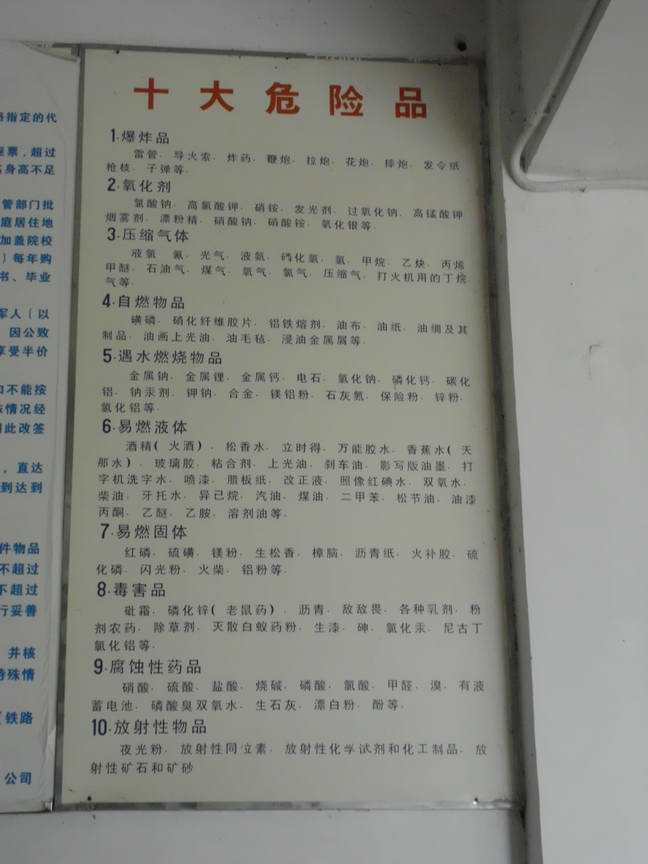 十大危险品
1·爆炸品
雷管、导火索、炸药、鞭炮、拉炮、花炮、摔炮、发令纸
枪枝、子弹等.
2·氧化剂
氯酸钠、高氯酸钾、硝铵、发光剂、过氧化钠、高锰酸钾
烟雾剂、漂粉精、硝酸钠、硝酸铵、氧化银等.
3·压缩气体
液氯、氮、光气、液氨、硒化氢、氢、甲烷、乙炔、丙烯
甲醚、石油气、煤气、氧气、氯气、压缩气、打火机用的丁烷
气等.
4·自燃物品
磺磷、硝化纤维胶片、铝铁熔剂、油布、油纸、油绸及其
制品、油画上光油、油毛毡、浸油金属屑等.
5·遇水燃烧物品
金属钠、金属锂、金属钙、电石、氢化钠、磷化钙、碳化
铝、钠汞剂、钾钠、合金、镁铝粉、石灰氮、保险粉、锌粉、
氢化铝等.
6·易燃液体
酒精(火酒)、松香水、立时得、万能胶水、香蕉水(天
那水)、玻璃胶、粘合剂、上光油、刹车油、影写版油墨、打
字机洗字水、喷漆、腊板纸、改正液、照像红碘水、双氧水、
柴油、牙托水、异己烷、汽油、煤油、二甲苯、松节油、油漆
丙酮、乙醚、乙胺、溶剂油等.
7·易燃固体
红磷、硫磺、镁粉、生松香、樟脑、沥青纸、火补胶、硫
化磷、闪光粉、火柴、铝粉等.
8·毒害品
砒霜、磷化锌(老鼠药)、沥青、敌敌畏、各种乳剂、粉
剂农药、除草剂、灭散白蚁药粉、生漆、砷、氯化汞、尼古丁
氯化铝等.
9·腐蚀性药品
硝酸、硫酸、盐酸、烧碱、磷酸、氯酸、甲醛、溴、有液
蓄电池、磷酸臭双氧水、生石灰、漂白粉、酚等.
10·放射性物品
夜光粉、放射性同位素、放射性化学试剂和化工制品、放
射性矿石和矿砂
指定的代
票，超过
身高不足
管部门批
庭居住地
加盖院校
）每年购
书、毕业
军人（以
因公致
享受半价
和不能按
情况经
因此改签
，直达
到达到
件物品
不超过
不超过
行妥善
并核
特殊情
铁路
公司